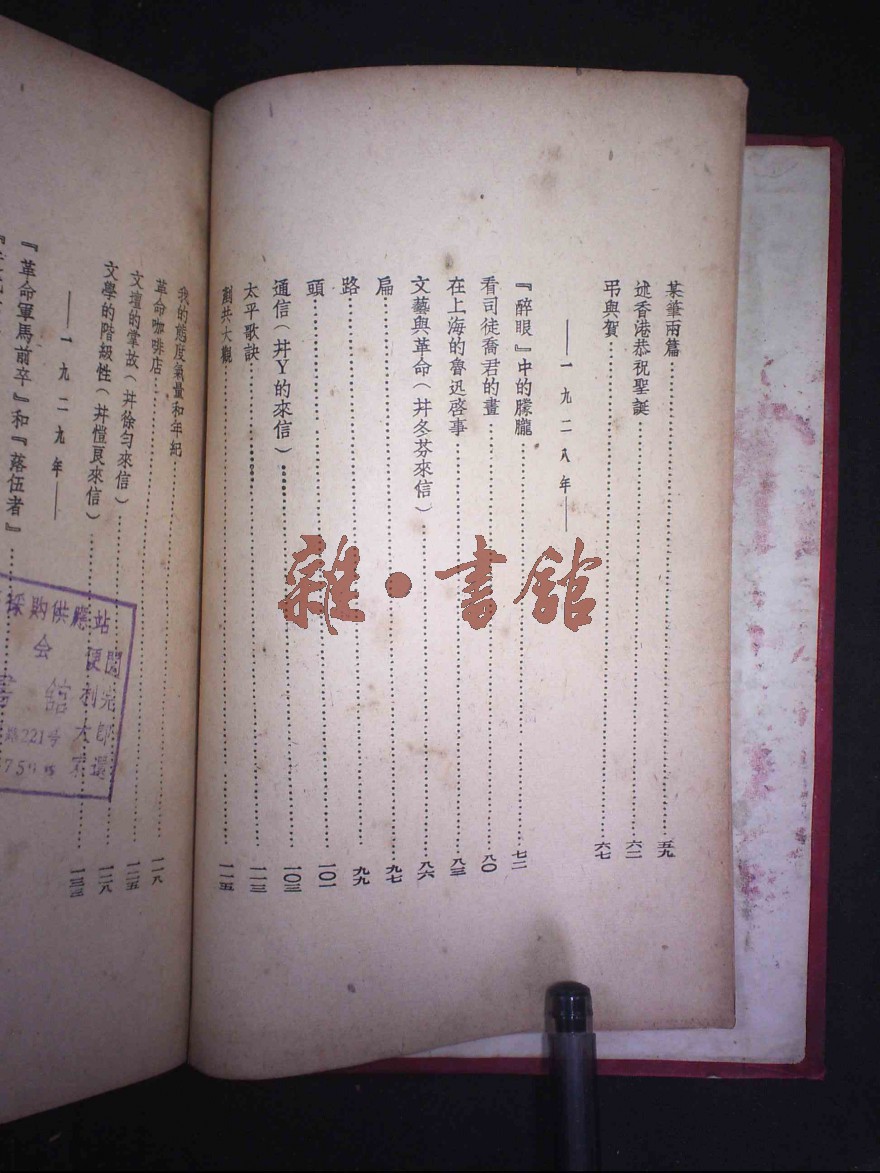 某筆兩篇………五九
述香港恭祝聖誕………六二
弔與賀………六七
——一九二八年——
『醉眼』中的朦朧………七二
看司徒喬君的畫………八〇
在上海的魯迅啓事………八三
文藝與革命(并冬芬來信)………八六
扁………九七
路………九九
頭………一〇一
通信(并Y的來信)………一〇三
太平歌訣………一一三
剷共大觀………一一五
我的態度氣量和年紀………一一八
革命咖啡店………一二五
文壇的掌故(并徐匀來信)………一二八
文學的階級性(并愷良來信)………一三三
——一九二九年——
『革命軍馬前卒』和『落伍者』………
雜·書舘
採購供應站
会
舘
路221号
閱完即還
便利大家